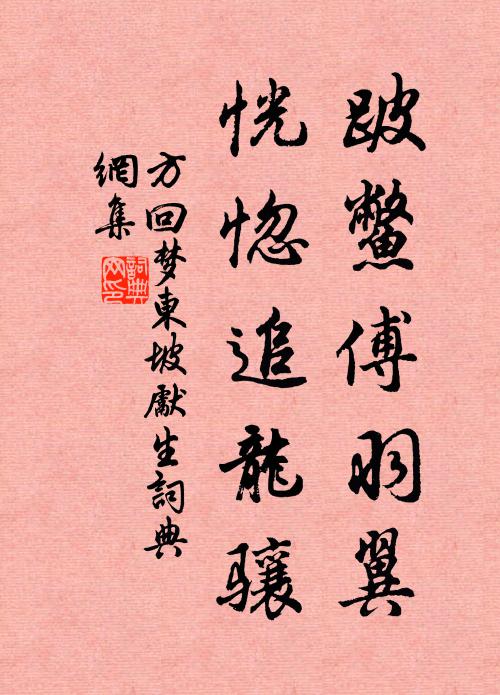 跛鱉傅羽翼
恍惚追龍驤
方回梦東坡獻生詞典
網集
詞典網印